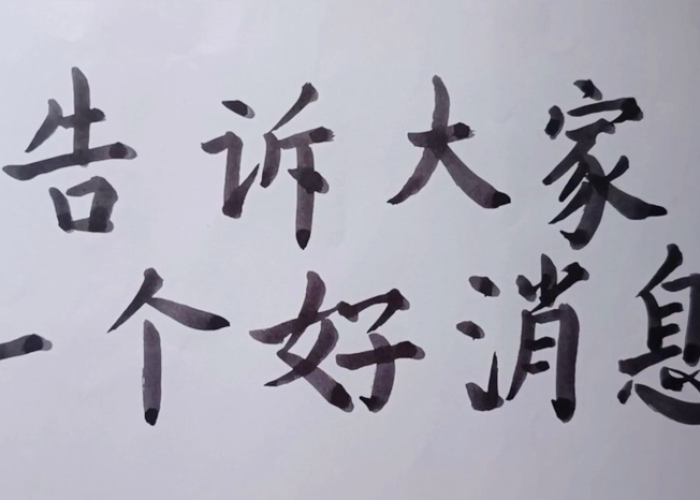 告诉大家
一个好消息